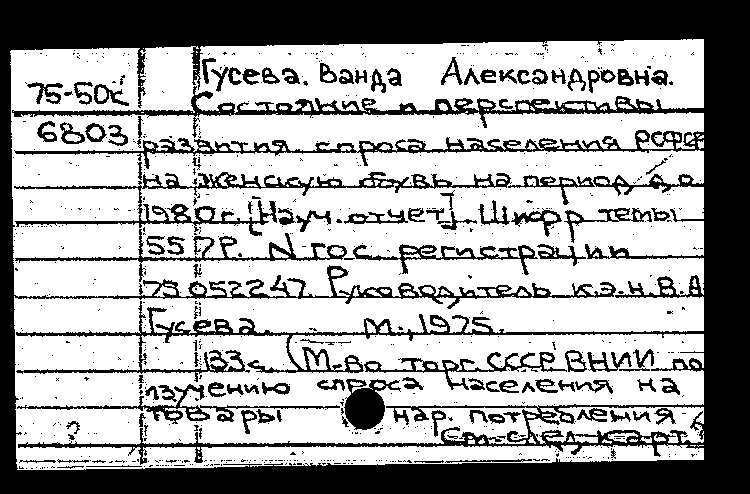 Гусева. Ванда Александровна.
75-50с
Состояние и перспективы
6803
развития спроса населения РСФСР
на женскую обувь на период до
1980г. [Науч. отчет]. Шифр темы
557Р. N гос. регистрации
75052247. Руководитель к.э.н. В.А.
Гусева. М., 1975.
133с. (М-во торг. СССР ВНИИ по
изучению спроса населения на
товары нар. потребления
См. след. карт.